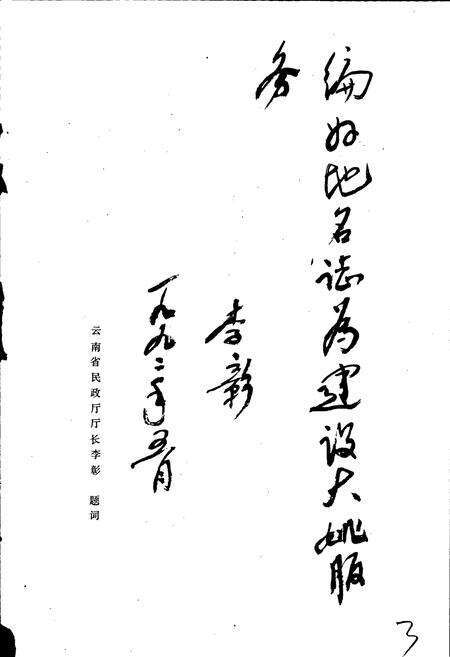 编好地名誌为建设大姚服
务
李彰
一九九二年五月
云南省民政厅厅长李彰 题词
3